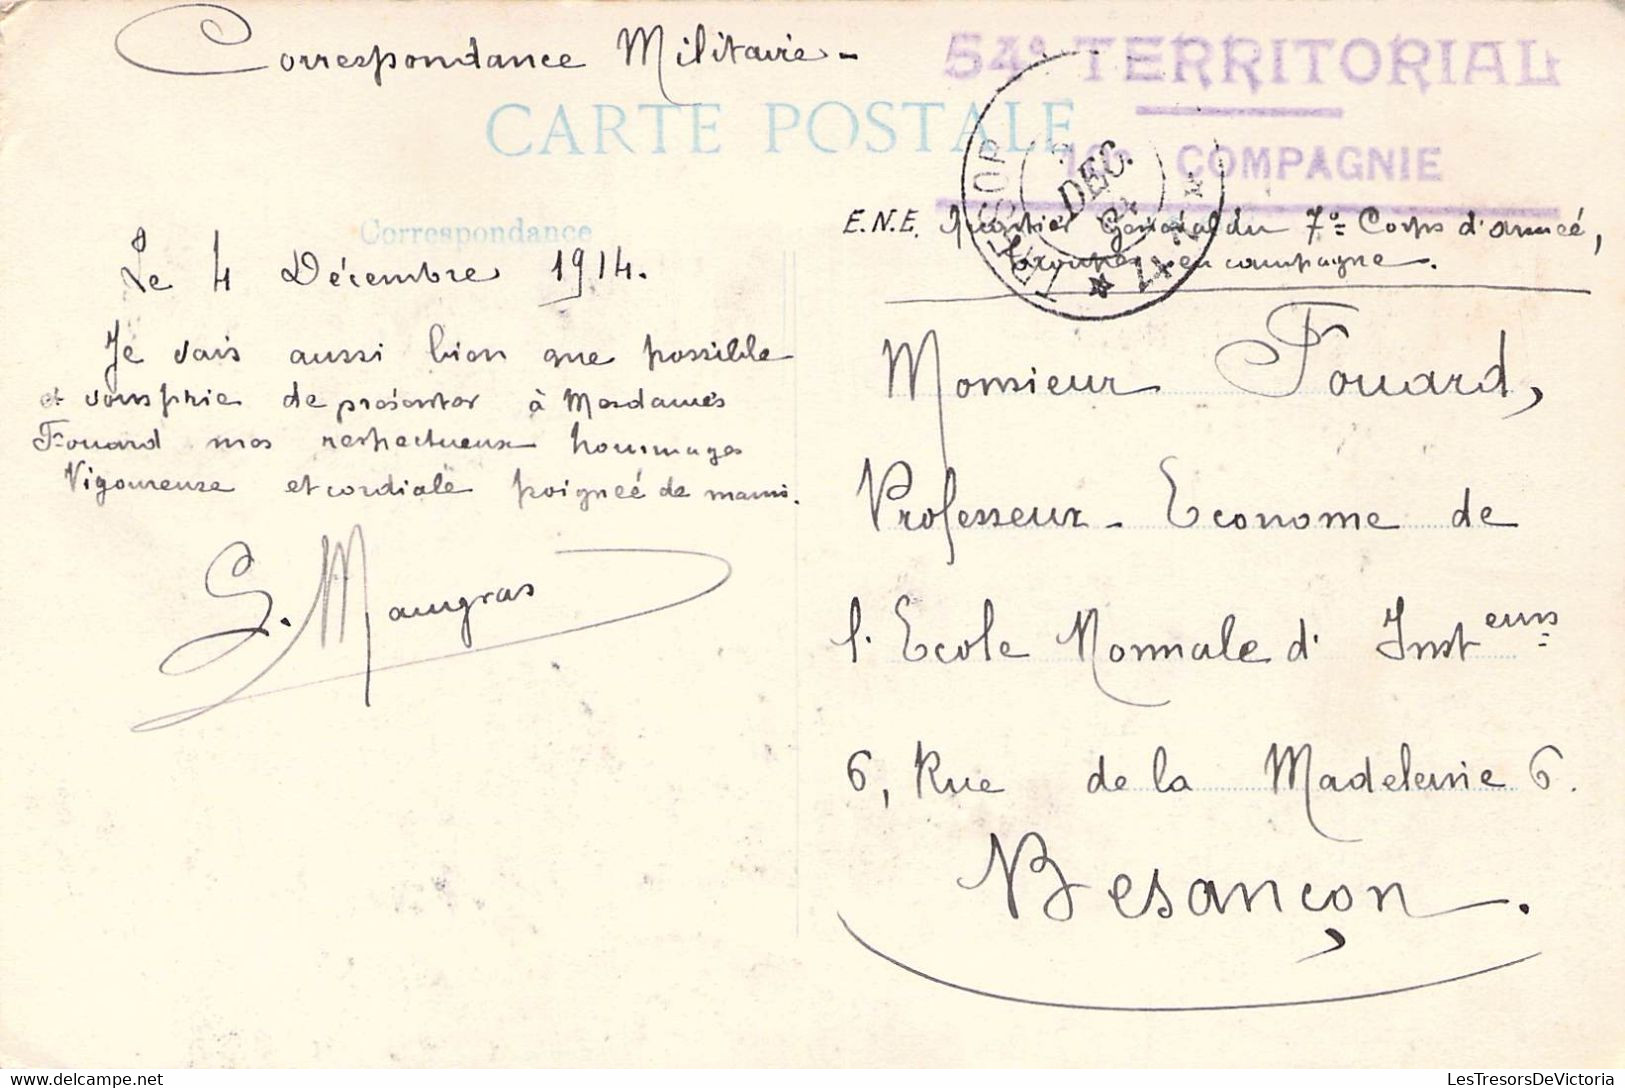 Correspondance Militaire -
54e TERRITORIAL
CARTE POSTALE
COMPAGNIE
DEC.
TRESOR
Correspondance
E.N.E. Quartier Général du 7e Corps d'armée,
Troupes en campagne.
Le 4 Décembre 1914.
Je vais aussi bien que possible
et vous prie de présenter à Mesdames
Fouard mes respectueux hommages
Vigoureuse et cordiale poignée de mains.
G. Maugras
Monsieur Fouard,
Professeur - Econome de
l'Ecole Normale d'Insteurs
6, Rue de la Madeleine 6.
Besançon.
LesTresorsDeVictoria
https://www.delcampe.net/